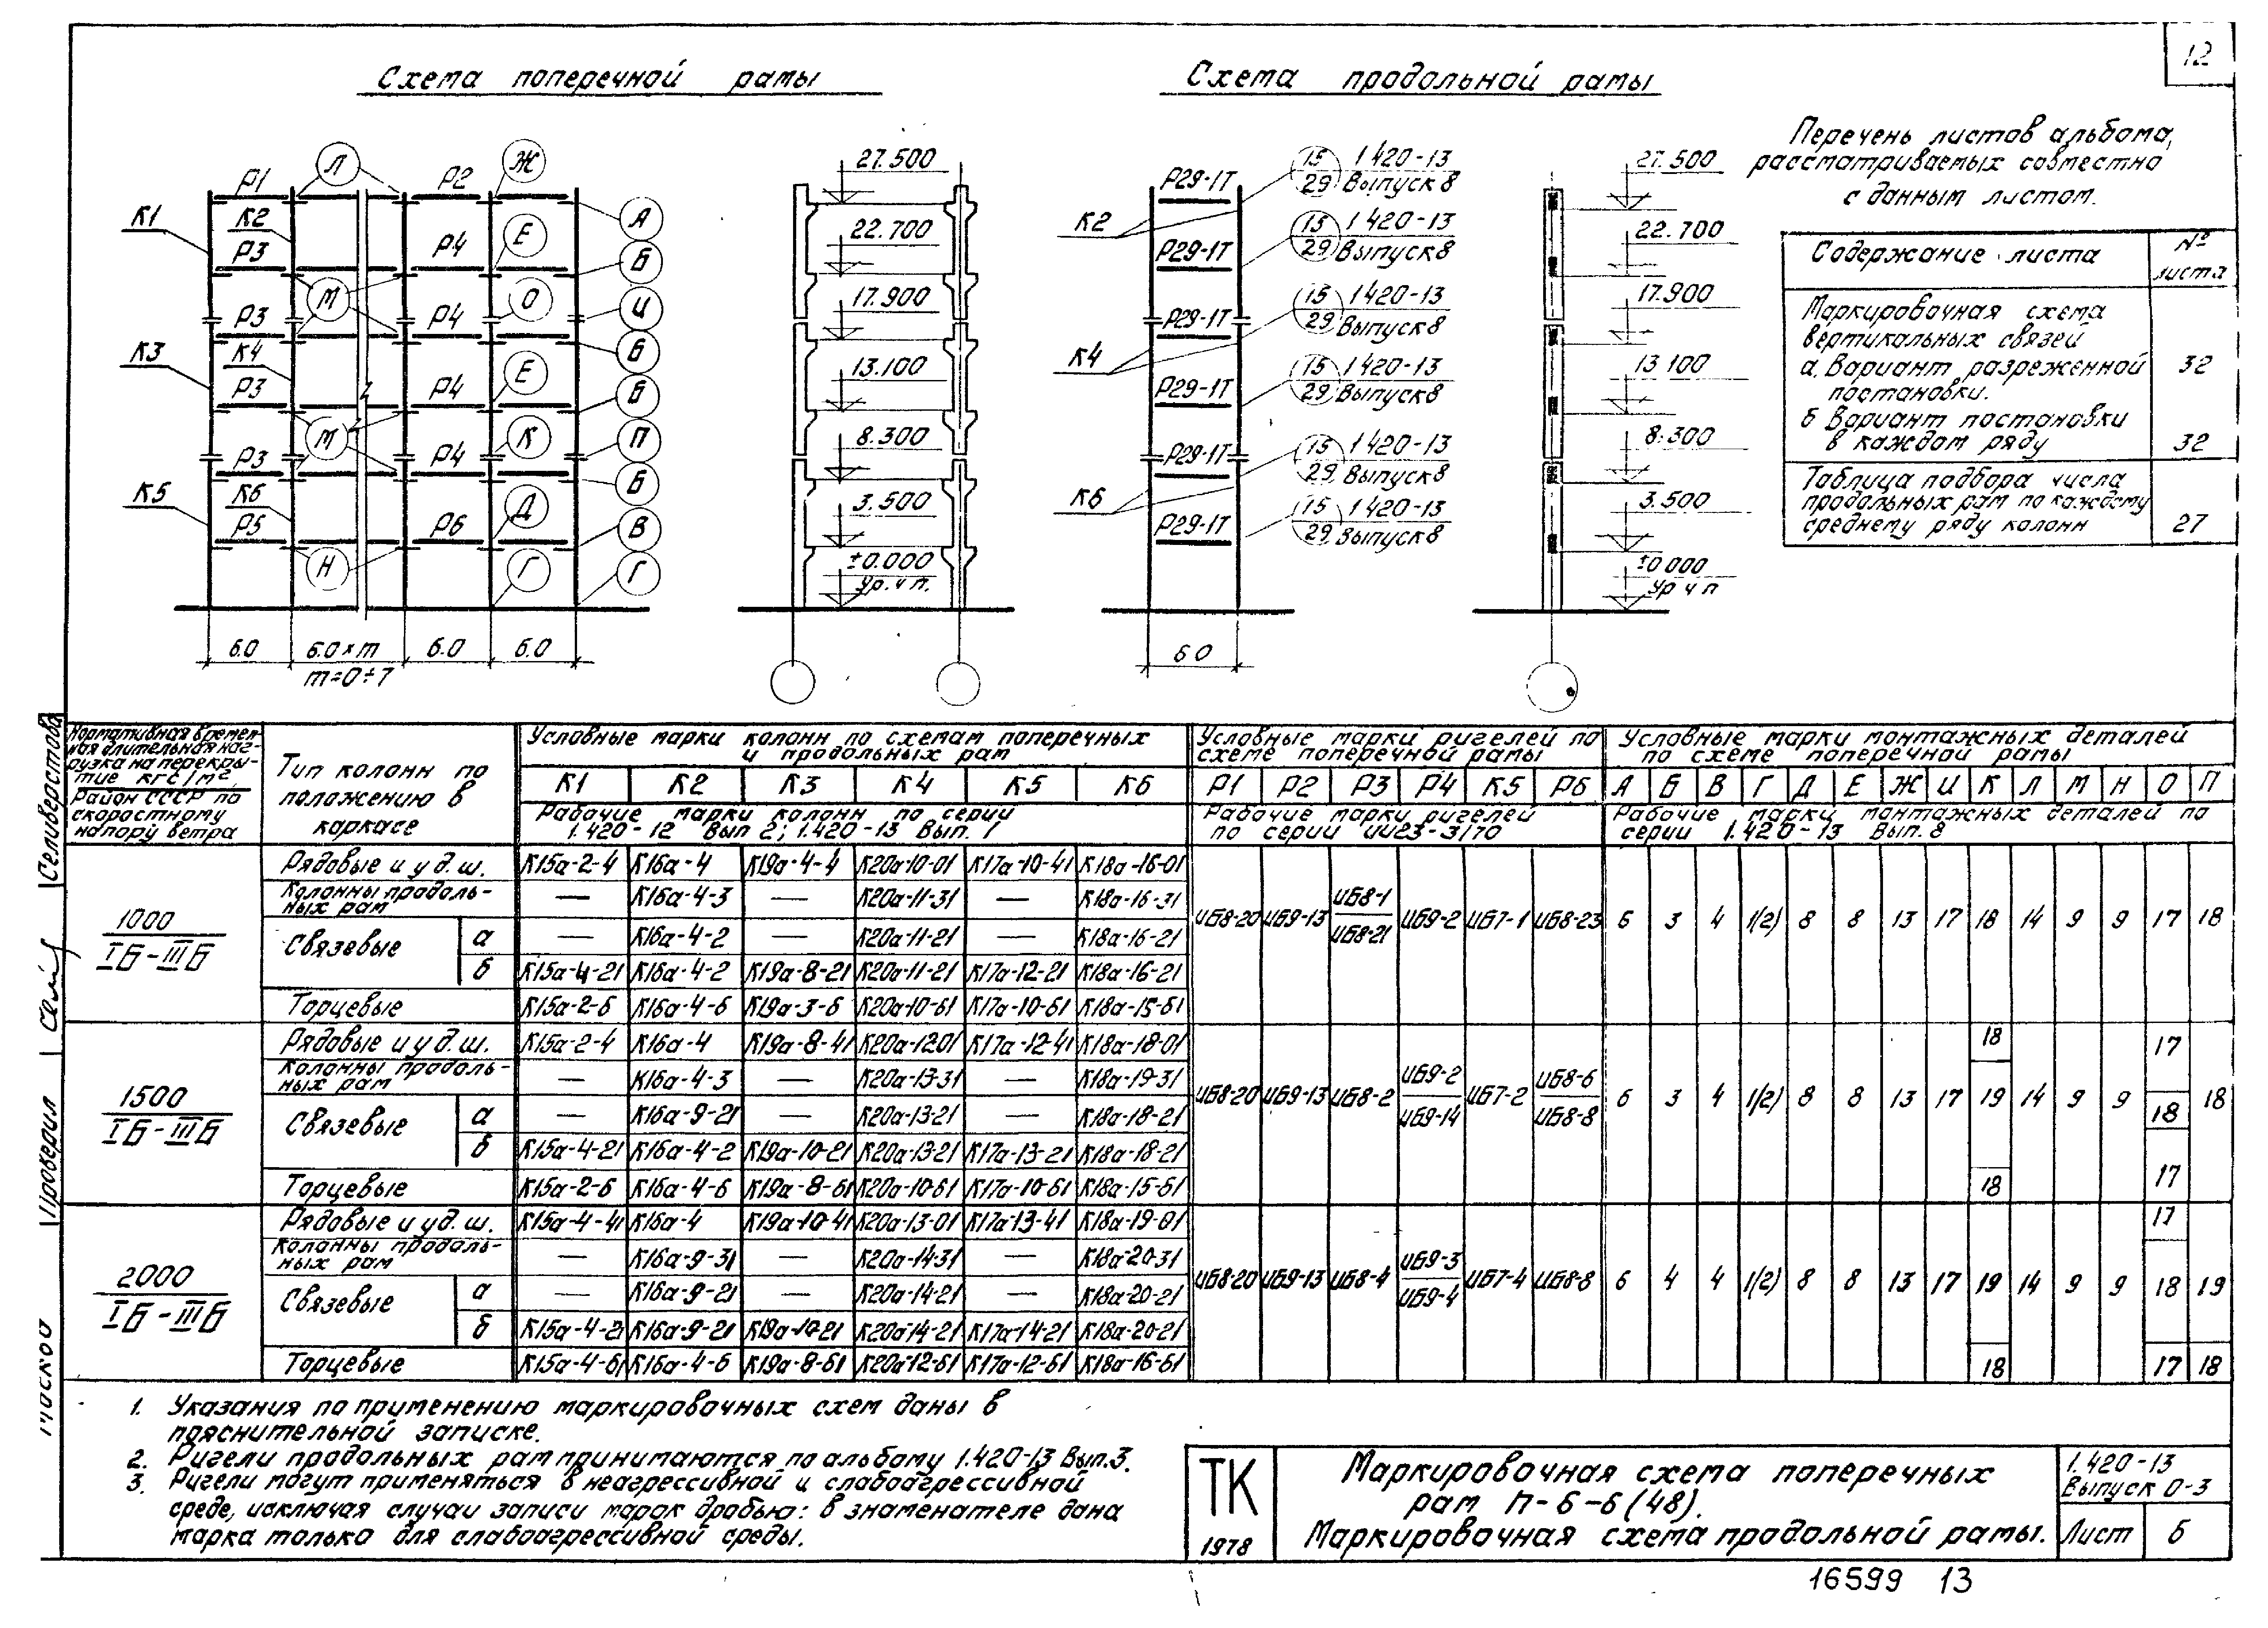 12
Схема поперечной рамы
Схема продольной рамы
Перечень листов альбома,
рассматриваемых совместно
с данным листом.
Содержание листа
№
листа
Маркировочная схема
вертикальных связей
а. Вариант разреженной
постановки.
32
б Вариант постановки
в каждом ряду
32
Таблица подбора числа
продольных рам по каждому
среднему ряду колонн
27
Р1 Л Р2 Ж
К1 К2 А
Р3 Р4 Е Б
М О И
Р3 Р4
К3 К4 Б
Р3 Р4 Е Б
М К П
Р3 Р4
К5 К6 Б
Р5 Р6 Д В
Н Г Г
6.0 6.0×m 6.0 6.0
m=0÷7
27.500
22.700
17.900
13.100
8.300
3.500
±0.000
Ур.ч.п.
Р29-1Т 15 1 420-13
29 Выпуск 8
К2
Р29-1Т 15 1 420-13
29 Выпуск 8
Р29-1Т 15 1 420-13
29 Выпуск 8
К4
Р29-1Т 15 1 420-13
29 Выпуск 8
Р29-1Т 15 1 420-13
29 Выпуск 8
К6
Р29-1Т 15 1 420-13
29 Выпуск 8
6 0
27.500
22.700
17.900
13 100
8.300
3.500
±0 000
Ур ч п
Нормативная времен-
ная длительная наг-
рузка на перекры-
тие кгс/м²
Район СССР по
скоростному
напору ветра
Тип колонн по
положению в
каркасе
Условные марки колонн по схемам поперечных
и продольных рам
К1 К2 К3 К4 К5 К6
Рабочие марки колонн по серии
1.420-12 Вып 2; 1.420-13 Вып. 1
Условные марки ригелей по
схеме поперечной рамы
Р1 Р2 Р3 Р4 К5 Р6
Рабочие марки ригелей
по серии ИИ23-3/70
Условные марки монтажных деталей
по схеме поперечной рамы
А Б В Г Д Е Ж И К Л М Н О П
Рабочие марки монтажных деталей по
серии 1.420-13 Вып. 8
1000
IБ-IIIБ
Рядовые и у д.ш. К15а-2-4 К16а-4 К19а-4-4 К20а-10-01 К17а-10-41 К18а-16-01
Колонны продоль-
ных рам — К16а-4-3 — К20а-11-31 — К18а-16-31
Связевые а — К16а-4-2 — К20а-11-21 — К18а-16-21
б К15а-4-21 К16а-4-2 К19а-8-21 К20а-11-21 К17а-12-21 К18а-16-21
Торцевые К15а-2-6 К16а-4-6 К19а-3-6 К20а-10-61 К17а-10-61 К18а-15-61
ИБ8-20 ИБ9-13 ИБ8-1 ИБ8-21 ИБ9-2 ИБ7-1 ИБ8-23 6 3 4 1(2) 8 8 13 17 18 14 9 9 17 18
1500
IБ-IIIБ
Рядовые и у д.ш. К15а-2-4 К16а-4 К19а-8-41 К20а-12-01 К17а-12-41 К18а-18-01
Колонны продоль-
ных рам — К16а-4-3 — К20а-13-31 — К18а-19-31
Связевые а — К16а-9-21 — К20а-13-21 — К18а-18-21
б К15а-4-21 К16а-4-2 К19а-10-21 К20а-13-21 К17а-13-21 К18а-18-21
Торцевые К15а-2-6 К16а-4-6 К19а-8-61 К20а-10-61 К17а-10-61 К18а-15-61
ИБ8-20 ИБ9-13 ИБ8-2 ИБ9-2 ИБ9-14 ИБ7-2 ИБ8-6 ИБ8-8 6 3 4 1(2) 8 8 13 17 18 19 18 14 9 9 17 18 17 18
2000
IБ-IIIБ
Рядовые и у д.ш. К15а-4-41 К16а-4 К19а-10-41 К20а-13-01 К17а-13-41 К18а-19-01
Колонны продоль-
ных рам — К16а-9-31 — К20а-14-31 — К18а-20-31
Связевые а — К16а-9-21 — К20а-14-21 — К18а-20-21
б К15а-4-21 К16а-9-21 К19а-10-21 К20а-14-21 К17а-14-21 К18а-20-21
Торцевые К15а-4-61 К16а-4-6 К19а-8-61 К20а-12-61 К17а-12-61 К18а-16-61
ИБ8-20 ИБ9-13 ИБ8-4 ИБ9-3 ИБ9-4 ИБ7-4 ИБ8-8 6 4 4 1(2) 8 8 13 17 19 18 14 9 9 17 18 17 19 18
1. Указания по применению маркировочных схем даны в
пояснительной записке.
2. Ригели продольных рам принимаются по альбому 1.420-13 Вып.3.
3. Ригели могут применяться в неагрессивной и слабоагрессивной
среде, исключая случаи записи марок дробью: в знаменателе дана
марка только для слабоагрессивной среды.
ТК
1978
Маркировочная схема поперечных
рам П-6-6 (48).
Маркировочная схема продольной рамы.
1.420-13
Выпуск 0-3
Лист 6
16599 13
Селиверстова
Проверил